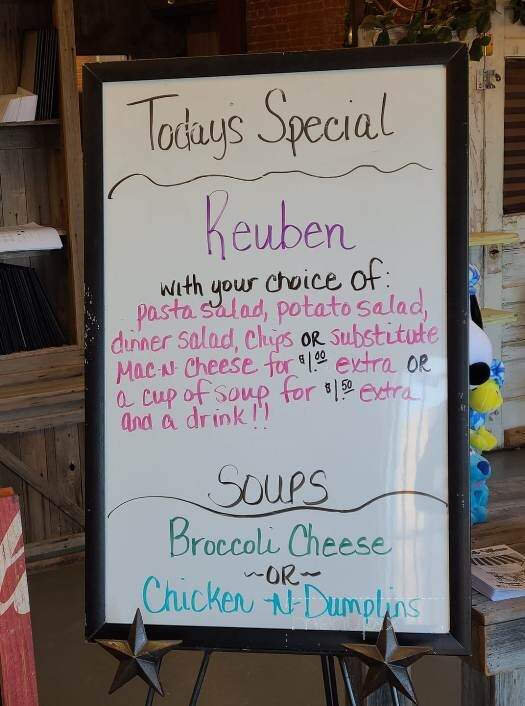 Today's Special
Reuben
with your choice of:
pasta salad, potato salad,
dinner salad, chips OR substitute
Mac-N-Cheese for $1.00 extra OR
a cup of soup for $1.50 extra
and a drink!!
SOUPS
Broccoli Cheese
~OR~
Chicken -N- Dumplins